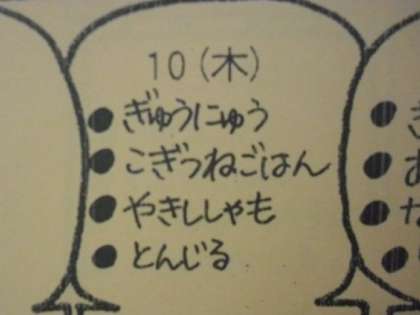 10(木)
●ぎゅうにゅう
●こぎつねごはん
●やきししゃも
●とんじる